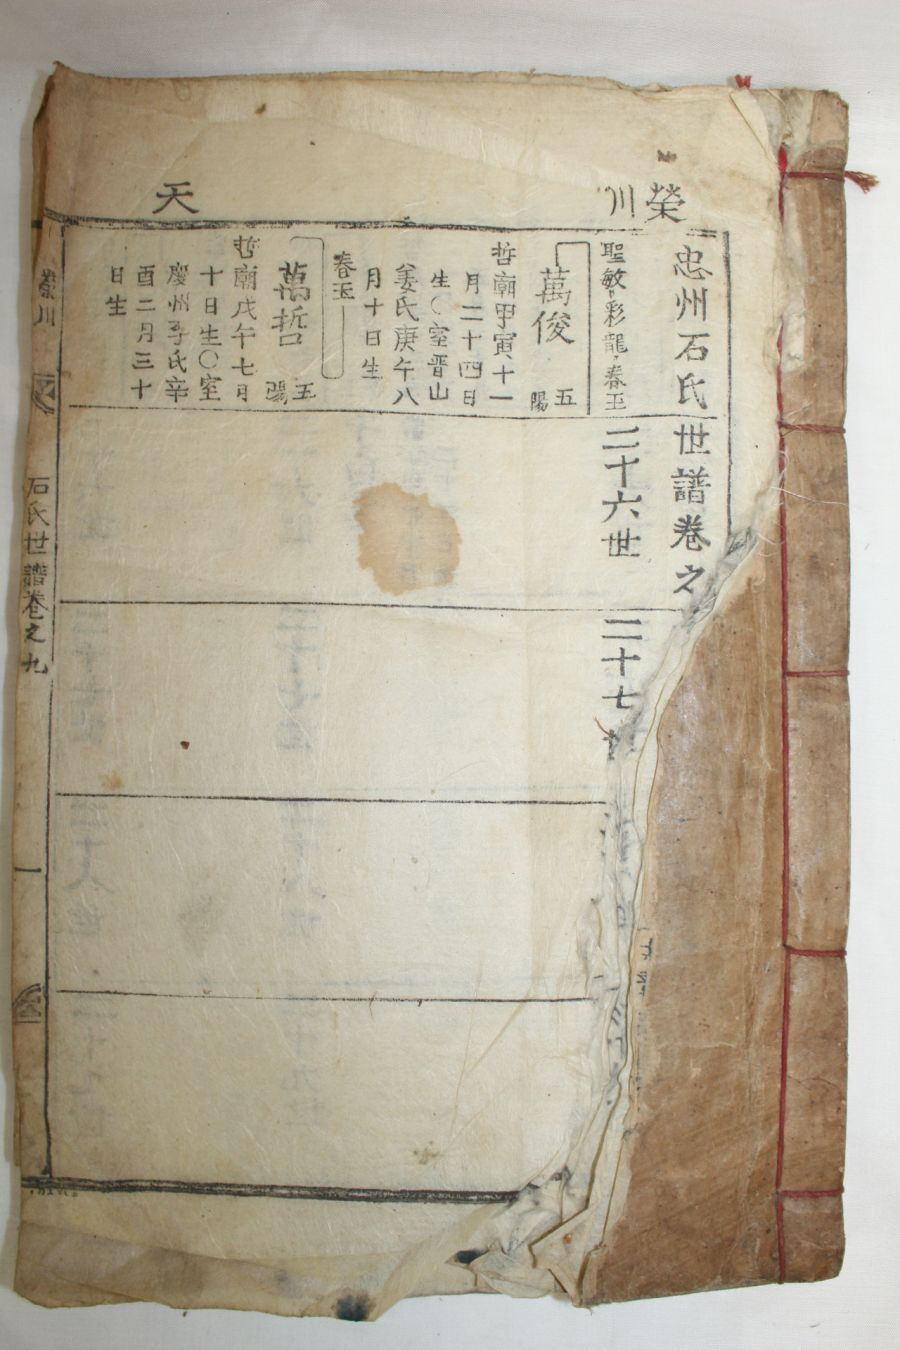 榮川
天
忠州石氏世譜卷之
聖敏 彩龍 春玉
二十六世
二十七世
萬俊
五
陽
哲廟甲寅十一
月二十四日
生〇室晋山
姜氏庚午八
月十日生
春玉
萬哲
五
陽
哲廟戊午七月
十日生〇室
慶州李氏辛
酉二月三十
日生
榮川
石氏世譜卷之九
一